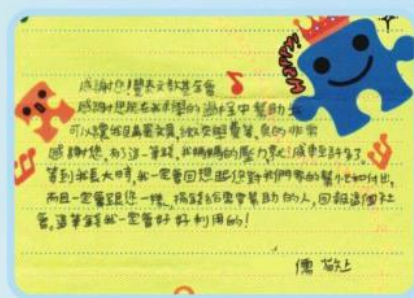 感謝您!豐泰文教基金會
感謝您能在我求學的過程中幫助我
可以讓我目前營養費、繳交學費等,真的非常
感謝您,有了這一筆錢,我媽媽的壓力就減輕許多了,
等到我長大時,我一定會回想起您對我們家的幫忙和付出,
而且一定會跟您一樣,捐錢給需要幫助的人,回報這個社
會,這筆錢我一定會好好利用的!
儒 敬上